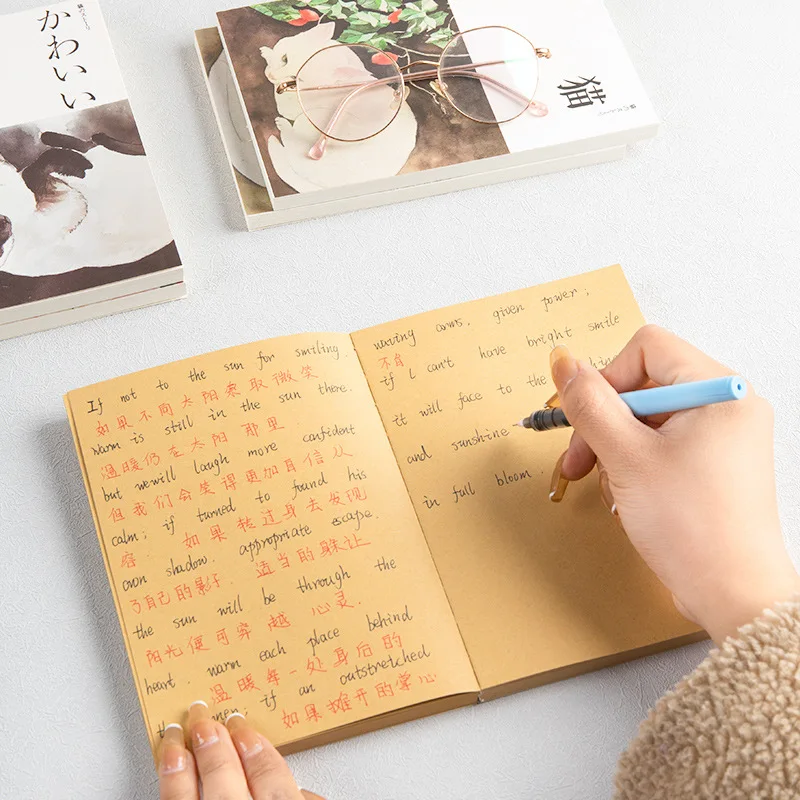 かわいい
猫
If not to the sun for smiling.
如果不向太阳索取微笑
Warm is still in the sun there.
温暖仍在太阳 那里
but we will laugh more confident
但我们会笑得更加自信从
calm; if turned to found his
容 如果 转过身去发现
own shadow. appropriate escape.
了自己的影子 适当的躲让
the sun will be through the
阳光便可穿越 心灵.
heart. warm each place behind
温暖每一处身后的
if an outstretched
如果摊开的掌心
waving arms, given power;
if I can't have bright smile
it will face to the
and sunshine
in full bloom.